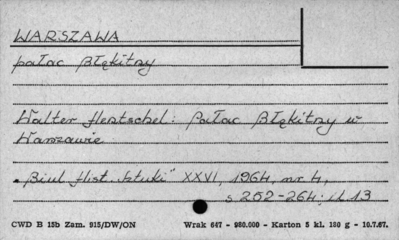 WARSZAWA
pałac Błękitny
Walter Hentschel: Pałac Błękitny w
Warszawie
„Biul Hist. Sztuki" XXVI, 1964, nr 4,
s 252-264; il 13
CWD B 15b Zam. 915/DW/ON Wrak 647 - 980.000 - Karton 5 kl. 180 g - 10.7.67.